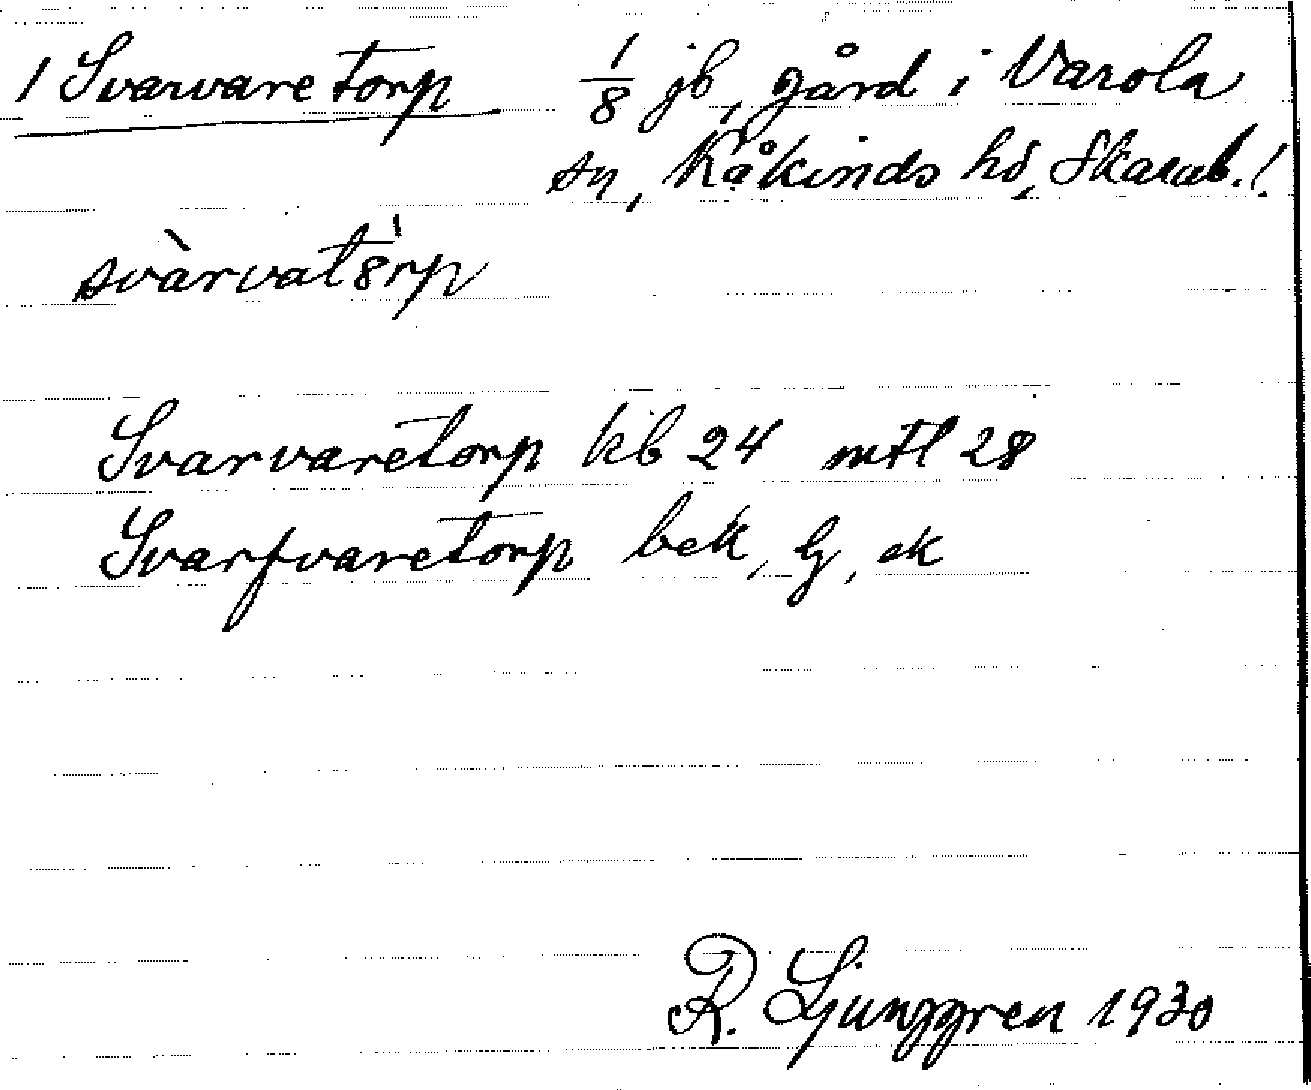 1 Svarvaretorp 1/8 jb, gård i Varola
sn, Kåkinds hd, Skarab. l.
svàrvat8́rp
Svarvaretorp kb 24 mtl 28
Svarfvaretorp bek, Lj, ek
R. Ljunggren 1930